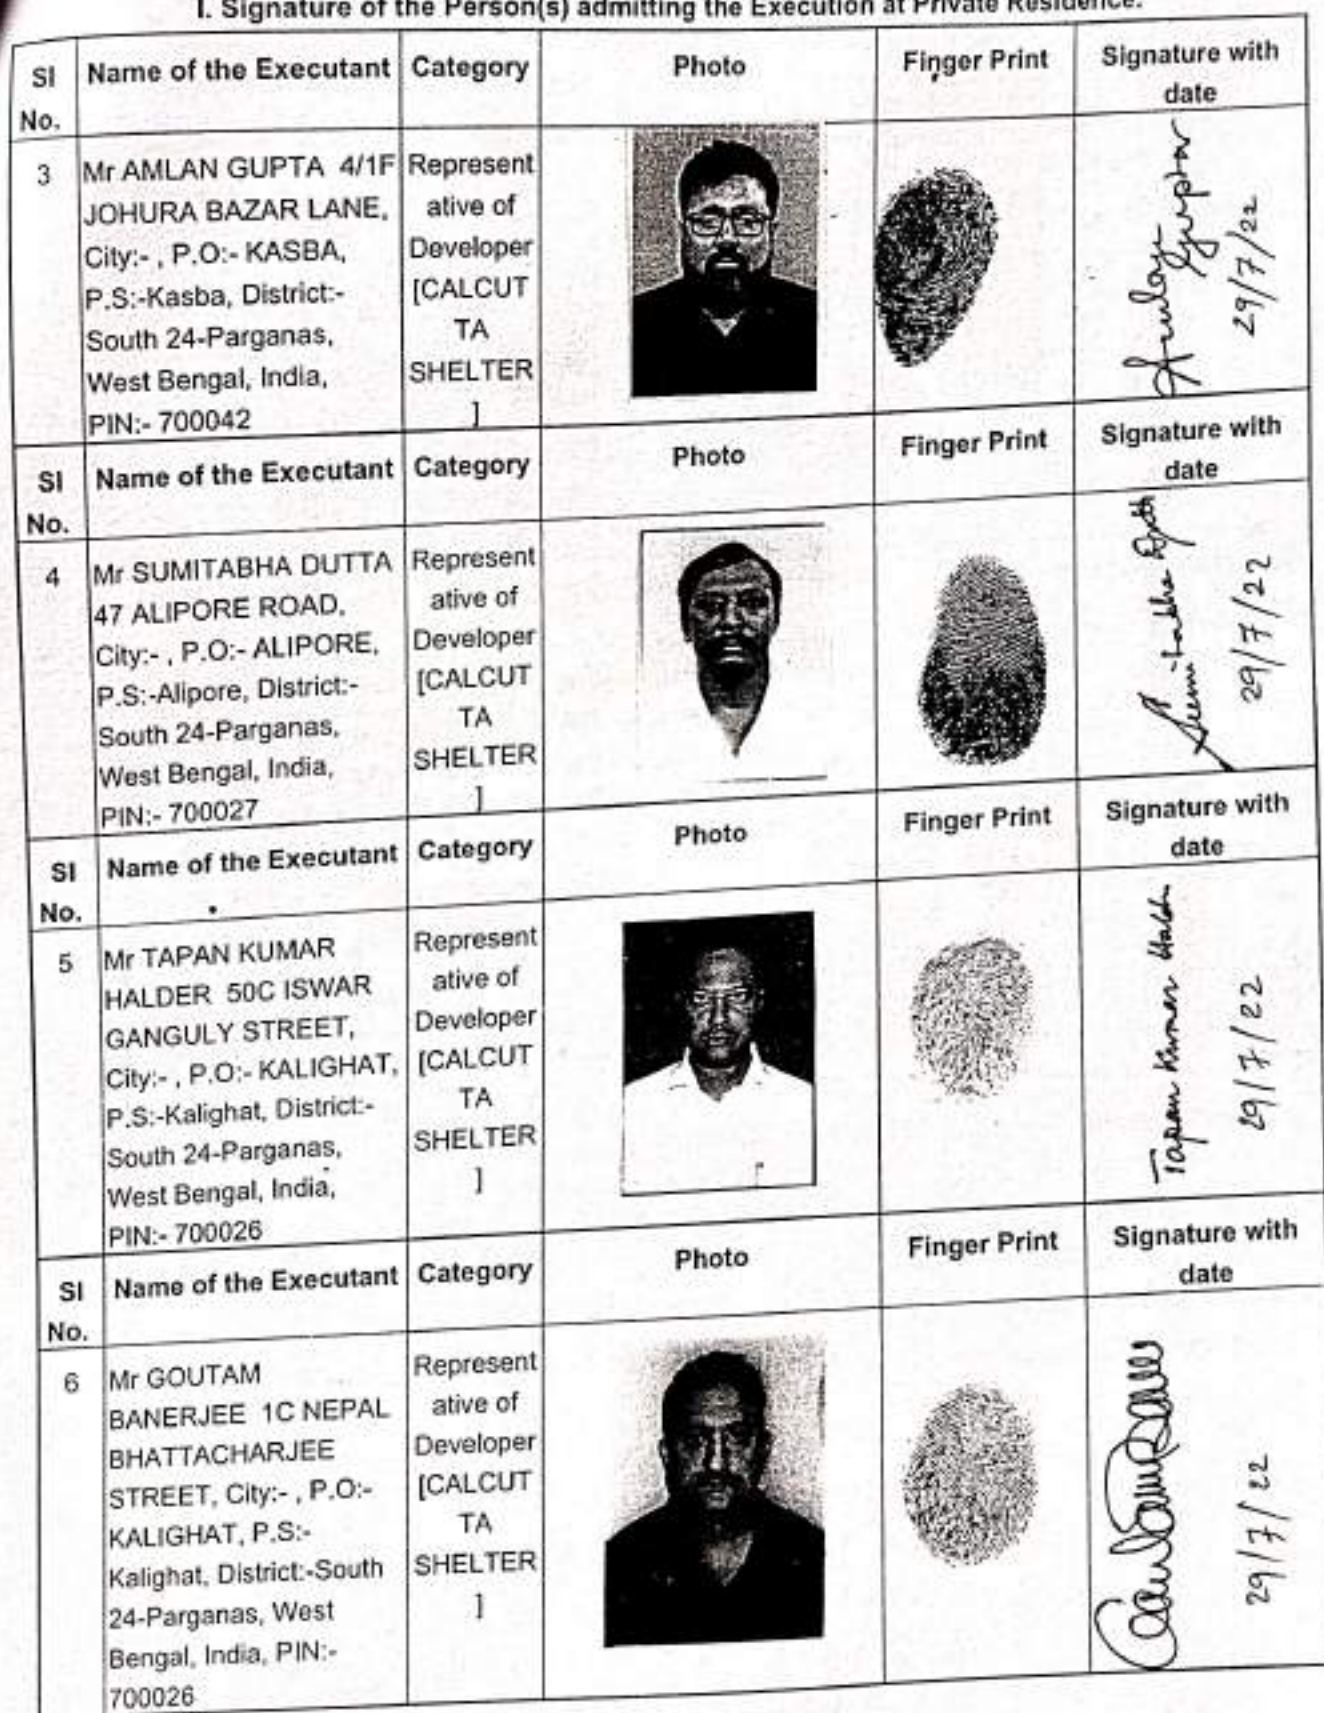 I. Signature of the Person(s) admitting the Execution at Private Residence.
SI No. Name of the Executant Category Photo Finger Print Signature with date
3 Mr AMLAN GUPTA 4/1F
JOHURA BAZAR LANE,
City:- , P.O:- KASBA,
P.S:-Kasba, District:-
South 24-Parganas,
West Bengal, India,
PIN:- 700042
Represent
ative of
Developer
[CALCUT
TA
SHELTER
]
Amlan
Gupta
29/7/22
SI No. Name of the Executant Category Photo Finger Print Signature with date
4 Mr SUMITABHA DUTTA
47 ALIPORE ROAD,
City:- , P.O:- ALIPORE,
P.S:-Alipore, District:-
South 24-Parganas,
West Bengal, India,
PIN:- 700027
Represent
ative of
Developer
[CALCUT
TA
SHELTER
]
Sumitabha Dutta
29/7/22
SI No. Name of the Executant Category Photo Finger Print Signature with date
5 Mr TAPAN KUMAR
HALDER 50C ISWAR
GANGULY STREET,
City:- , P.O:- KALIGHAT,
P.S:-Kalighat, District:-
South 24-Parganas,
West Bengal, India,
PIN:- 700026
Represent
ative of
Developer
[CALCUT
TA
SHELTER
]
Tapan Kumar Halder
29/7/22
SI No. Name of the Executant Category Photo Finger Print Signature with date
6 Mr GOUTAM
BANERJEE 1C NEPAL
BHATTACHARJEE
STREET, City:- , P.O:-
KALIGHAT, P.S:-
Kalighat, District:-South
24-Parganas, West
Bengal, India, PIN:-
700026
Represent
ative of
Developer
[CALCUT
TA
SHELTER
]
29/7/22